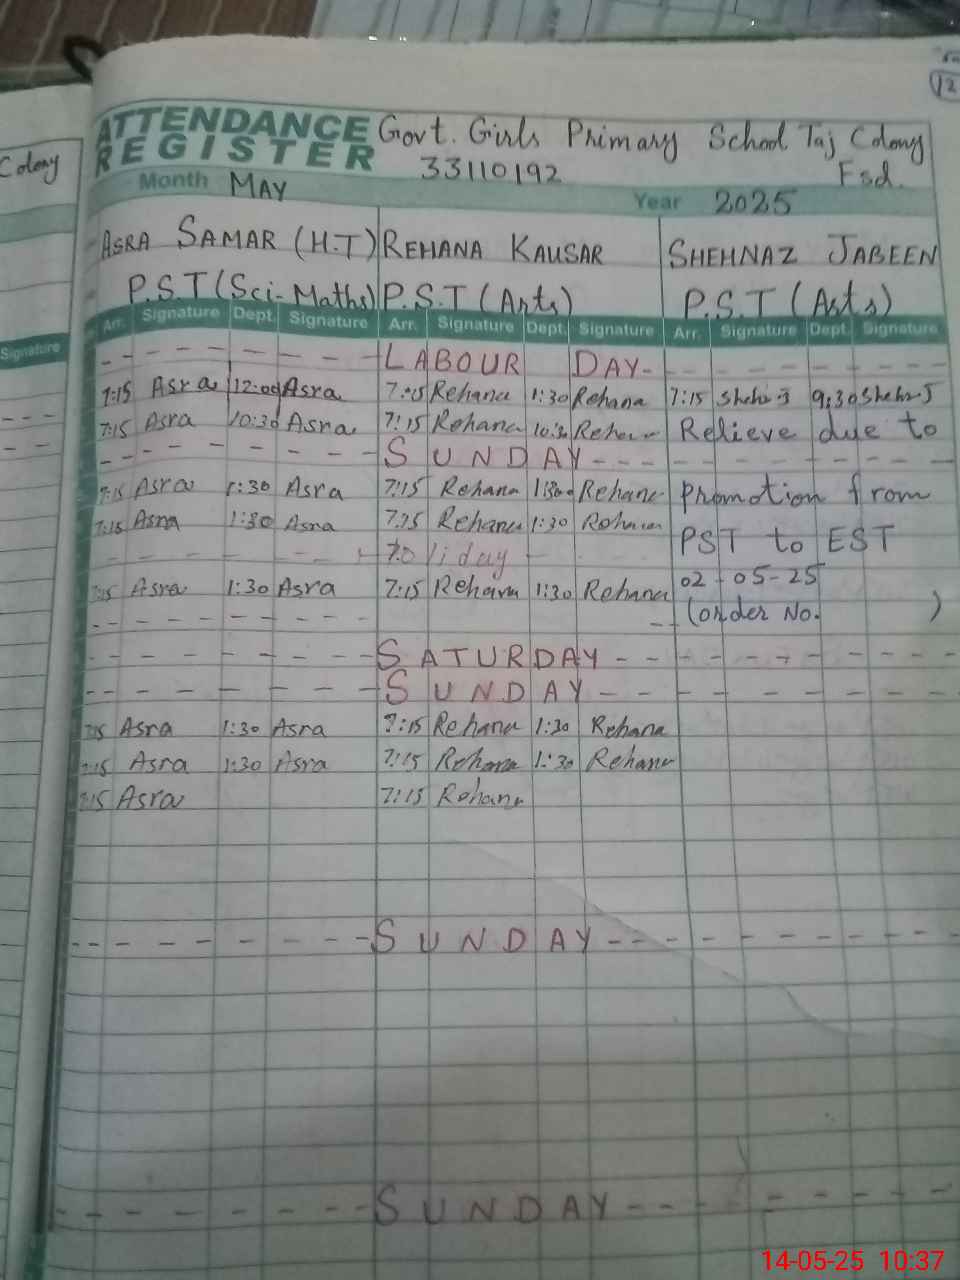 12
ATTENDANCE REGISTER Govt. Girls Primary School Taj Colony
33110192 Fsd.
Colony
Month MAY Year 2025
ASRA SAMAR (H.T) REHANA KAUSAR SHEHNAZ JABEEN
P.S.T (Sci-Maths) P.S.T (Arts) P.S.T (Arts)
Signature Arr. Signature Dept. Signature Arr. Signature Dept. Signature Arr. Signature Dept. Signature
LABOUR DAY
7:15 Asra 12:00 Asra 7:15 Rehana 1:30 Rehana 7:15 9:30
7:15 Asra 10:30 Asra 7:15 Rehana 10:30 Rehana Relieve due to
SUNDAY
7:15 Asra 1:30 Asra 7:15 Rehana 1:30 Rehana Promotion from
7:15 Asra 1:30 Asra 7:15 Rehana 1:30 Rehana PST to EST
Holiday
7:15 Asra 1:30 Asra 7:15 Rehana 1:30 Rehana 02-05-25
(order No. )
SATURDAY
SUNDAY
7:15 Asra 1:30 Asra 7:15 Rehana 1:30 Rehana
7:15 Asra 1:30 Asra 7:15 Rehana 1:30 Rehana
7:15 Asra 7:15 Rehana
SUNDAY
SUNDAY
14-05-25 10:37